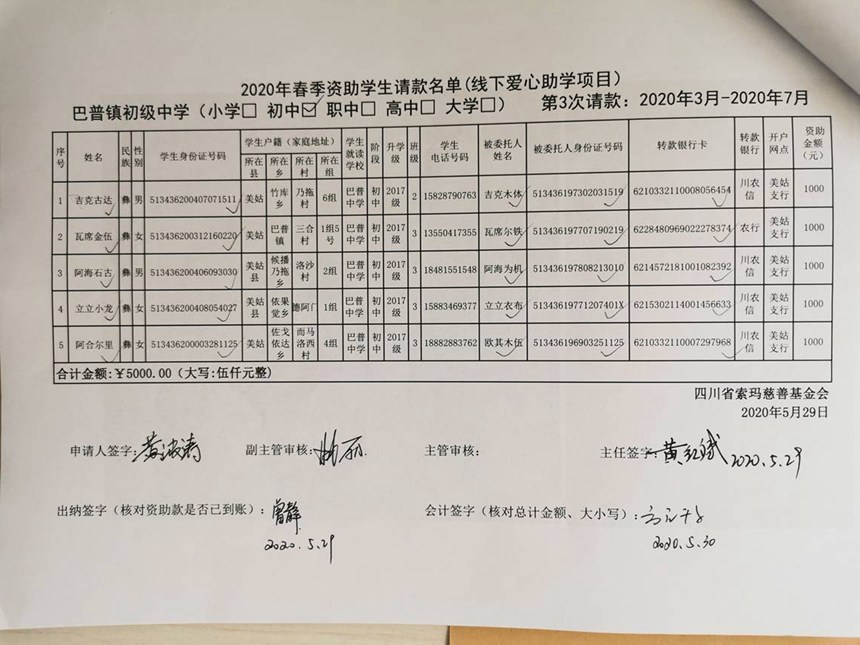 2020年春季资助学生请款名单(线下爱心助学项目)
巴普镇初级中学（小学□ 初中☑ 职中□ 高中□ 大学□） 第3次请款：2020年3月-2020年7月
序号 姓名 民族 性别 学生身份证号码 学生户籍（家庭地址） 所在县 所在乡 所在村 所在组 学生就读学校 阶段 升学级 班级 学生电话号码 被委托人姓名 被委托人身份证号码 转款银行卡 转款银行 开户网点 资助金额（元）
1 吉克古达 彝 男 513436200407071511 美姑 竹库乡 乃拖村 6组 巴普中学 初中 2017级 2 15828790763 吉克木体 513436197302031519 6210332110008056454 川农信 美姑支行 1000
2 瓦席金伍 彝 女 513436200312160220 美姑 巴普镇 三合村 1组5号 巴普中学 初中 2017级 3 13550417355 瓦席尔铁 513436197707190219 6228480969022278374 农行 美姑支行 1000
3 阿海石古 彝 男 513436200406093030 美姑县 候播乃拖乡 洛沙村 2组 巴普中学 初中 2017级 3 18481551548 阿海为机 513436197808213010 6214572181001082392 川农信 美姑支行 1000
4 立立小龙 彝 女 513436200408054027 美姑县 依果觉乡 德阿门 1组 巴普中学 初中 2017级 3 15883469377 立立衣布 51343619771207401X 6215302114001456633 川农信 美姑支行 1000
5 阿合尔里 彝 女 513436200003281125 美姑 佐戈依达乡 而马洛西村 4组 巴普中学 初中 2017级 3 18882883762 欧其木伍 513436196903251125 6210332110007297968 川农信 美姑支行 1000
合计金额:￥5000.00（大写:伍仟元整）
四川省索玛慈善基金会
2020年5月29日
申请人签字： 副主管审核： 主管审核： 主任签字： 2020.5.29
出纳签字（核对资助款是否已到账）：曾静 会计签字（核对总计金额、大小写）：
2020.5.29 2020.5.30